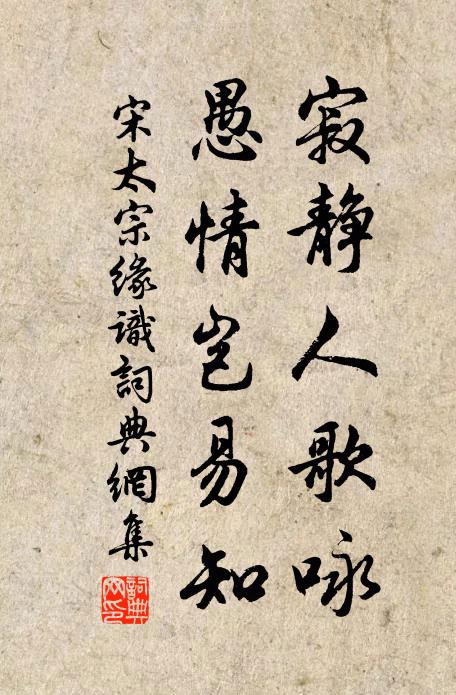 寂静人歌咏
愚情岂易知
宋太宗缘識詞典網集
詞典网印